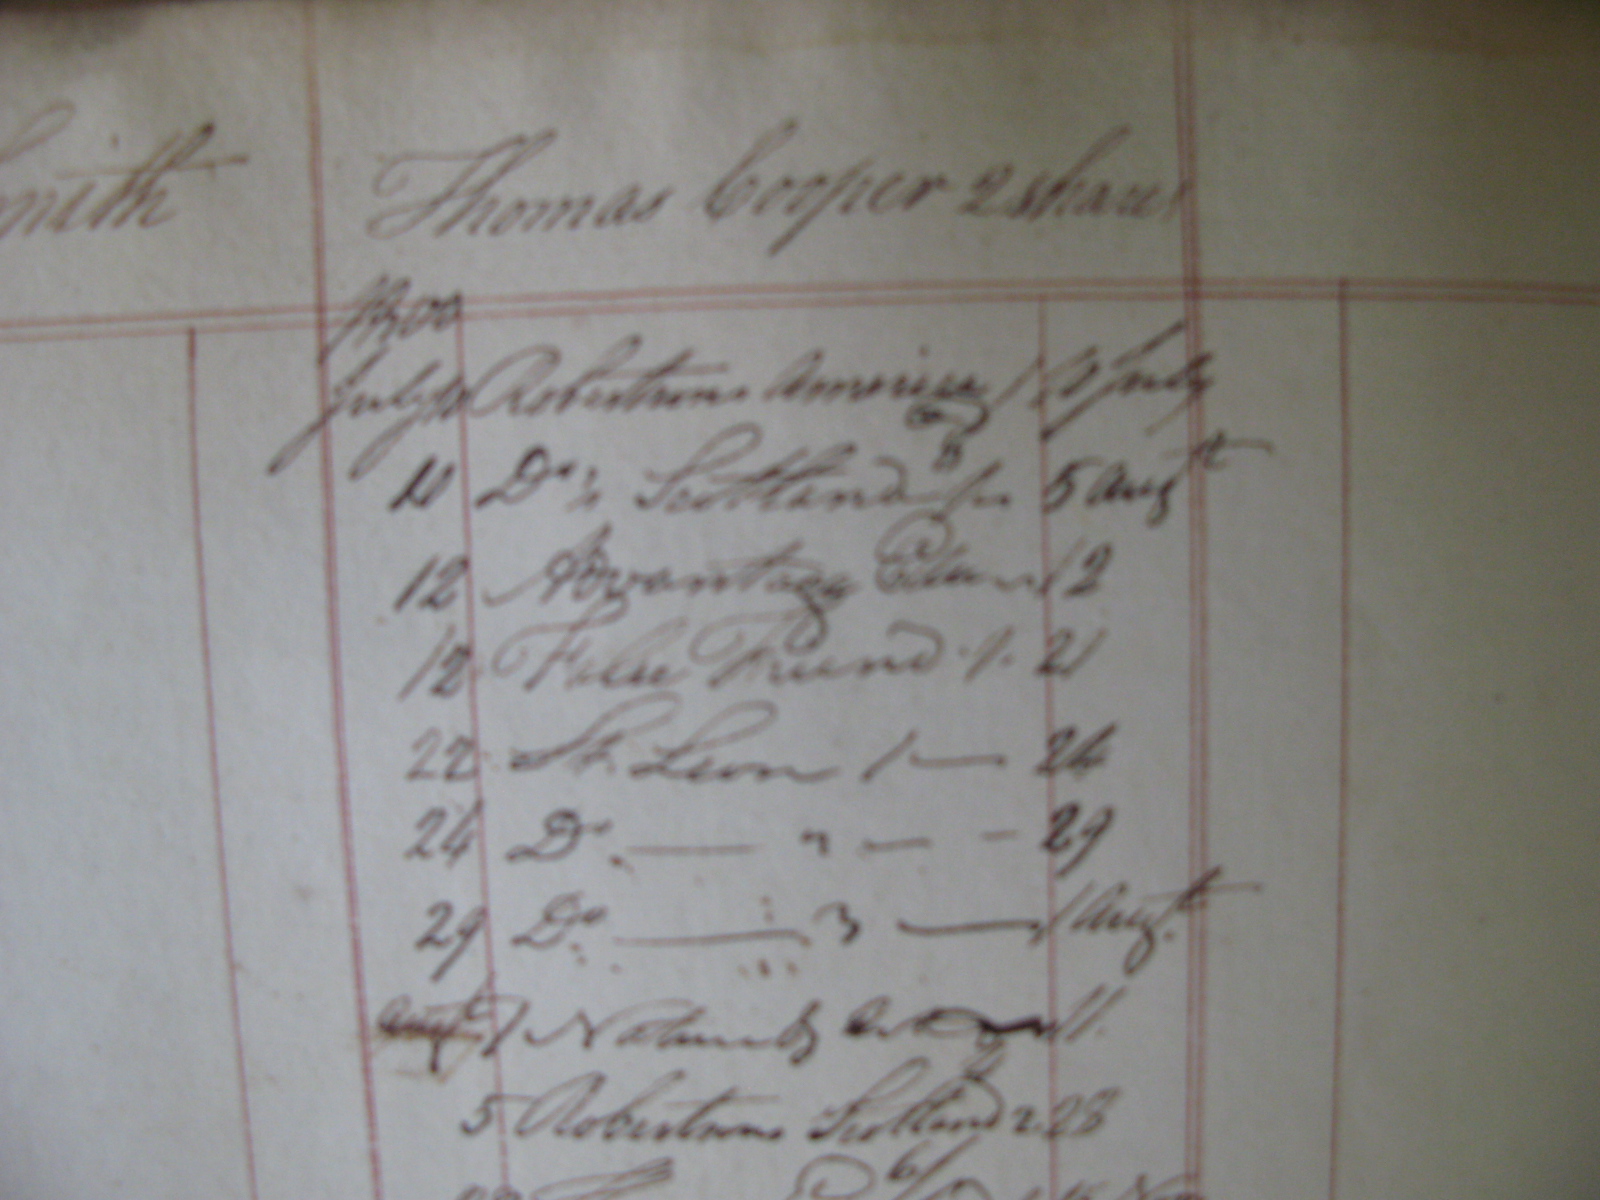 mith
Thomas Cooper 2 share
1800
July 10 Robertsons America 1 10 July
11 Do. Scotland 5 Augt
12 Advantage 12
12 False Friend 1. 21
22 St. Leon 1 — 24
24 Do. — 2 — 29
29 Do. — 3 — 1 Augt
Augt 1 11.
5 Robertsons Scotland 2 28